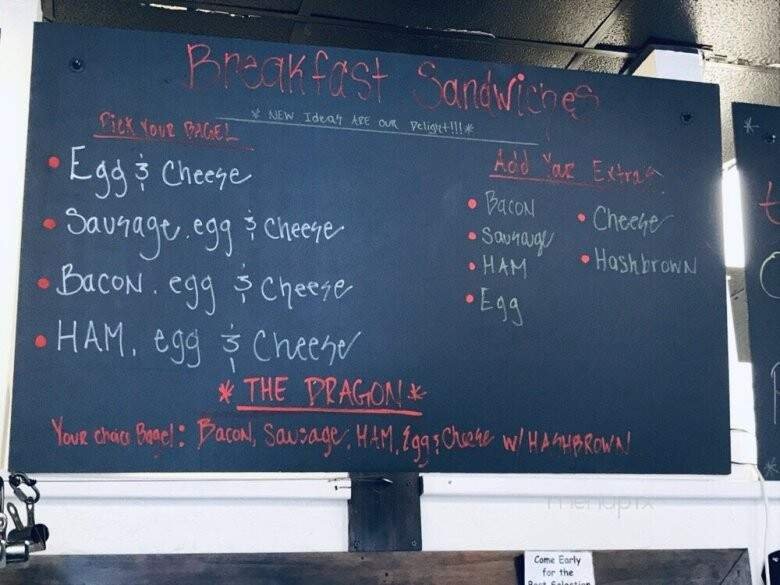 Breakfast Sandwiches
* NEW Ideas ARE OUR Delight!!! *
Pick Your BAGEL
• Egg & Cheese
• Sausage, egg & Cheese
• Bacon, egg & Cheese
• HAM, egg & Cheese
Add Your Extras
• Bacon
• Sausage
• HAM
• Egg
• Cheese
• Hashbrown
* THE DRAGON *
Your choice Bagel: Bacon, Sausage, HAM, Egg & Cheese w/ HASHBROWN
menupix
Come Early
for the
Best Selection